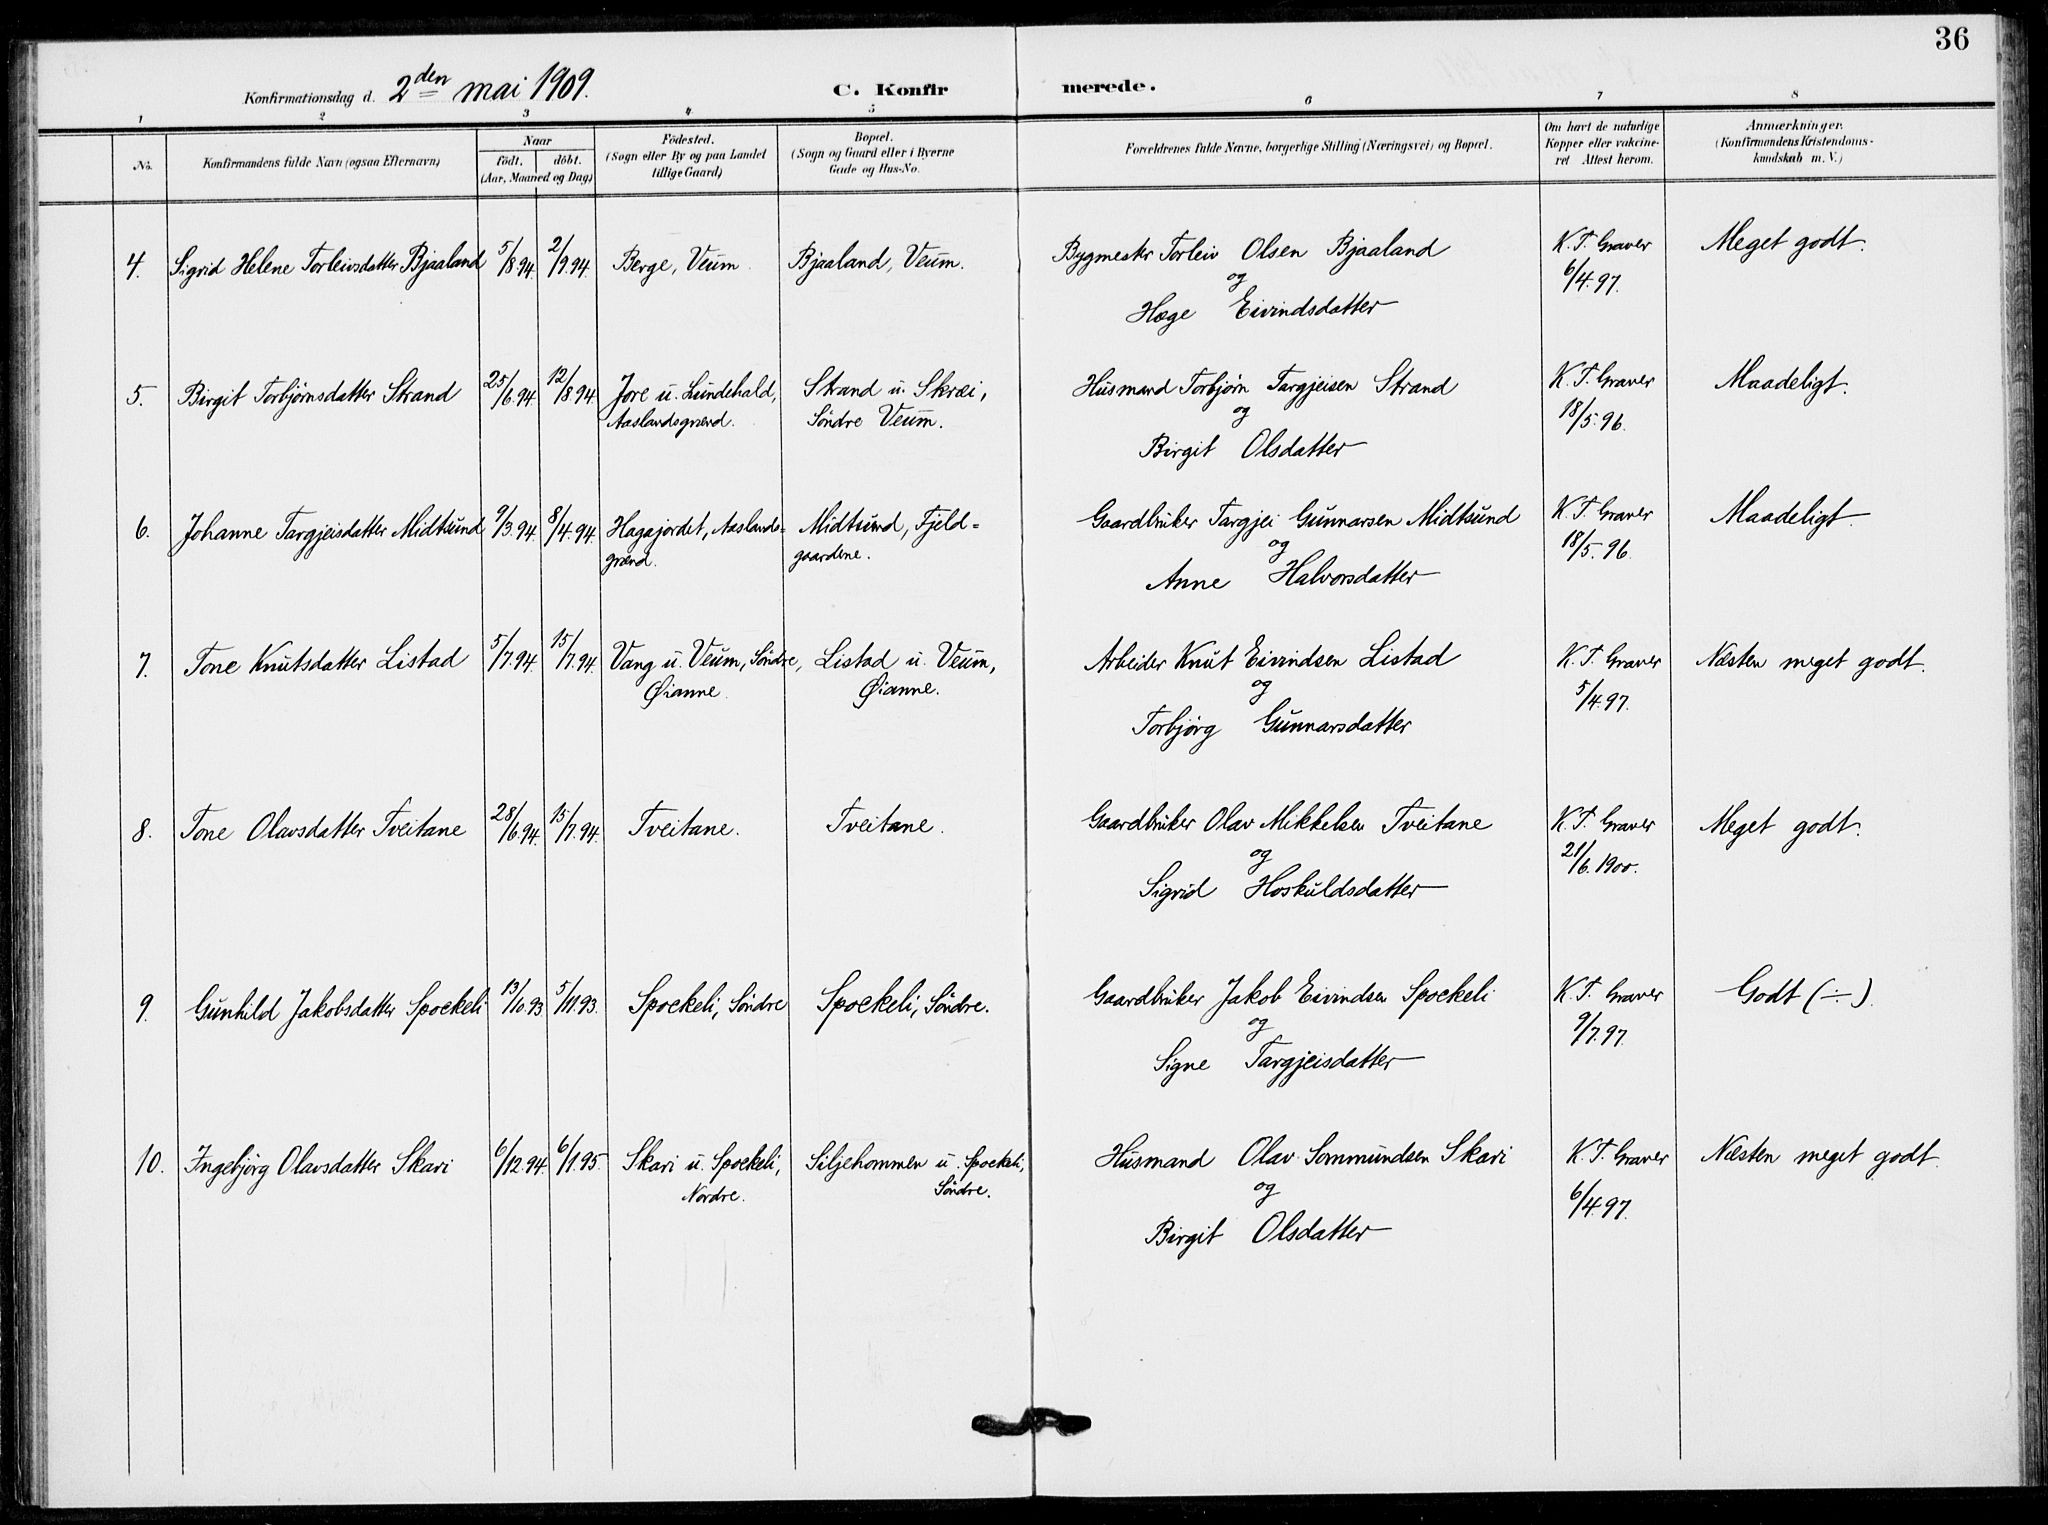 36
Konfirmationsdag d. 2den mai 1909.
C. Konfir merede.
1 2 3 4 5 6 7 8
No.
Konfirmandens fulde Navn (ogsaa Efternavn)
Naar
födt. döbt.
(Aar, Maaned og Dag)
Födested.
(Sogn eller By og paa Landet
tillige Gaard)
Bopæl.
(Sogn og Gaard eller i Byerne
Gade og Hus-No.
Forældrenes fulde Navne, borgerlige Stilling (Næringsvei) og Bopæl.
Om havt de naturlige
Kopper eller vakcine-
ret Attest herom.
Anmærkninger.
(Konfirmandens Kristendoms-
kundskab m. V.)
4. Sigrid Helene Torleivsdatter Bjaaland 5/8.94. 2/9.94. Berge, Veum. Bjaaland, Veum. Bygmester Torleiv Olsen Bjaaland K. T. Graver Meget godt.
og 6/4.97.
Hæge Eivindsdatter
5. Birgit Torbjørnsdatter Strand 25/6.94. 12/8.94. Jore u. Lundehald, Strand u. Skræi, Husmand Torbjørn Targjeisen Strand K. T. Graver Maadeligt.
Aaslandsgrend. Söndre Veum. og 18/5.96.
Birgit Olsdatter
6. Johanne Targjeisdatter Midtsund 9/3.94. 8/4.94. Hagajordet, Aaslands- Midtsund, Fjeld- Gaardbruker Targjei Gunnarsen Midtsund K. T. Graver Maadeligt.
grend. gaardene. og 18/5.96.
Anne Halvorsdatter
7. Tone Knutsdatter Listad 5/7.94. 15/7.94. Vang u. Veum, Söndre, Listad u. Veum, Arbeider Knut Eivindsen Listad K. T. Graver Næsten meget godt.
Øianne. Øianne. og 5/4.97.
Torbjørg Gunnarsdatter
8. Tone Olavsdatter Tveitane 28/6.94. 15/7.94. Tveitane. Tveitane. Gaardbruker Olav Mikkelsen Tveitane K. T. Graver Meget godt.
og 21/6.1900.
Sigrid Hoskuldsdatter
9. Gunhild Jakobsdatter Spockeli 13/10.93. 5/11.93. Spockeli, Söndre Spockeli, Söndre. Gaardbruker Jakob Eivindsen Spockeli K. T. Graver Godt (÷).
og 9/7.97.
Signe Targjeisdatter
10. Ingebjørg Olavsdatter Skari 6/12.94. 6/1.95. Skari u. Spockeli, Siljehommen u. Spockeli, Husmand Olav Sommundsen Skari K. T. Graver Næsten meget godt.
Nordre. Söndre. og 6/4.97.
Birgit Olsdatter